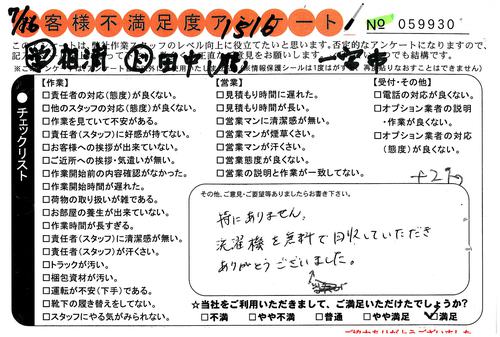 7/26 お客様不満足度アンケート! 1515
No 059930
このアンケートは、弊社作業スタッフのレベル向上に役立てたいと思います。否定的なアンケートになりますので、
相澤 田中 一宮市
チェックリスト
【作業】
□責任者の対応(態度)が良くない。
□他のスタッフの対応(態度)が良くない。
□作業を見ていて不安がある。
□責任者(スタッフ)に好感が持てない。
□お客様への挨拶が出来ていない。
□ご近所への挨拶・気遣いが無い。
□作業開始前の内容確認がなかった。
□作業開始時間が遅れた。
□荷物の取り扱いが雑である。
□お部屋の養生が出来ていない。
□作業時間が長すぎる。
□責任者(スタッフ)に清潔感が無い。
□責任者(スタッフ)が汗くさい。
□トラックが汚い。
□梱包資材が汚い。
□運転が不安(下手)である。
□靴下の履き替えをしてない。
□スタッフにやる気がみられない。
【営業】
□見積もり時間に遅れた。
□見積もり時間が長い。
□営業マンに清潔感が無い。
□営業マンが煙草くさい。
□営業マンが汗くさい。
□営業態度が良くない。
□営業の説明と作業が一致してない。
【受付・その他】
□電話の対応が良くない。
□オプション業者の説明
・作業が良くない。
□オプション業者の対応
(態度)が良くない。
その他、ご意見・ご要望等ありましたらお書き下さい。
特にありません。
洗濯機を無料で回収していただき
ありがとうございました。
☆当社をご利用いただきまして、ご満足いただけたでしょうか?
□不満 □やや不満 □普通 □やや満足 ☑満足
ご協力ありがとうございました